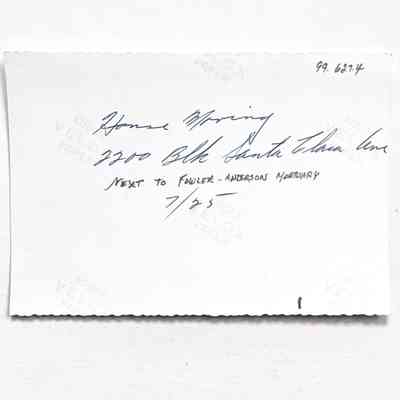 99.627.4
House Moving
2200 Blk Santa Clara Ave
NEXT TO FOWLER-ANDERSON MORTUARY
7/25
1